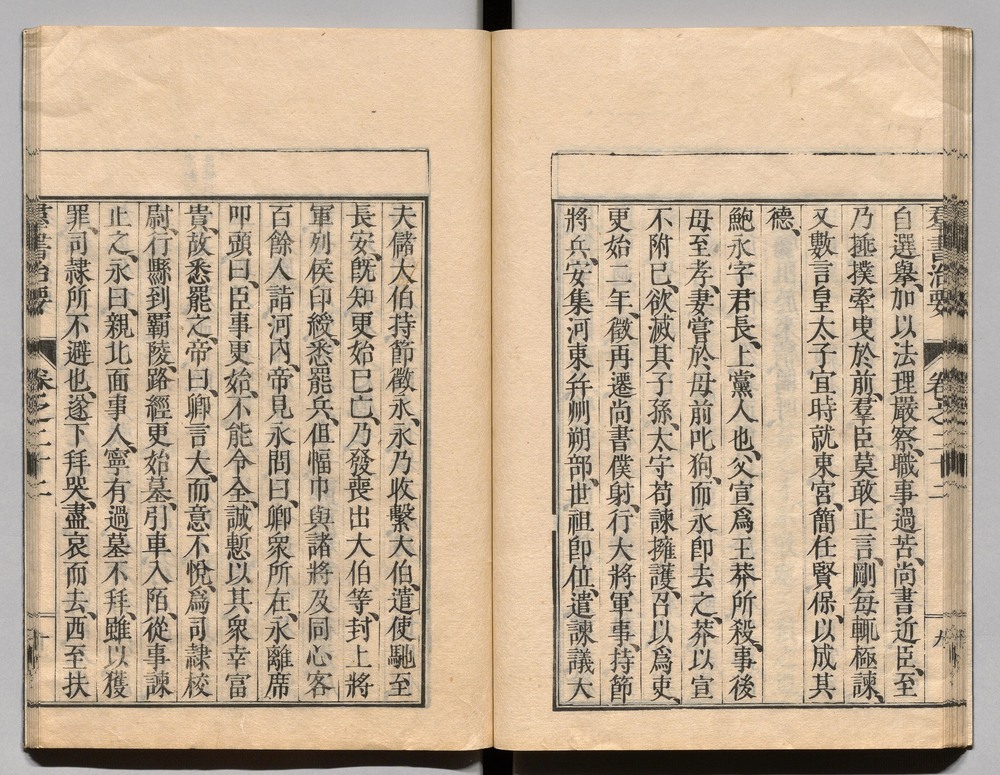 羣書治要 卷之二十二 九
自選舉、加以法理嚴察、職事過苦、尚書近臣、至
乃捶撲牽曳於前、羣臣莫敢正言、剛每輒極諫、
又數言皇太子宜時就東宮、簡任賢保、以成其
德、
鮑永字君長、上黨人也、父宣爲王莽所殺、事後
母至孝、妻嘗於母前叱狗、而永卽去之、莽以宣
不附已、欲滅其子孫、太守苟諫擁護、召以爲吏、
更始二年、徵再遷尚書僕射、行大將軍事、持節
將兵、安集河東幷州朔部、世祖卽位、遣諫議大
夫儲大伯持節徵永、永乃收繫大伯、遣使馳至
長安、旣知更始巳亡、乃發喪出大伯等、封上將
軍列侯印綬、悉罷兵、但幅巾與諸將及同心客
百餘人詣河內、帝見永問曰、卿衆所在、永離席
叩頭曰、臣事更始、不能令全、誠慙以其衆幸富
貴、故悉罷之、帝曰、卿言大、而意不悅、爲司隸校
尉、行縣到霸陵、路經更始墓、引車入陌、從事諫
止之、永曰、親北面事人、寧有過墓不拜、雖以獲
罪、司隸所不避也、遂下拜哭、盡哀而去、西至扶
羣書治要 卷之二十二 十